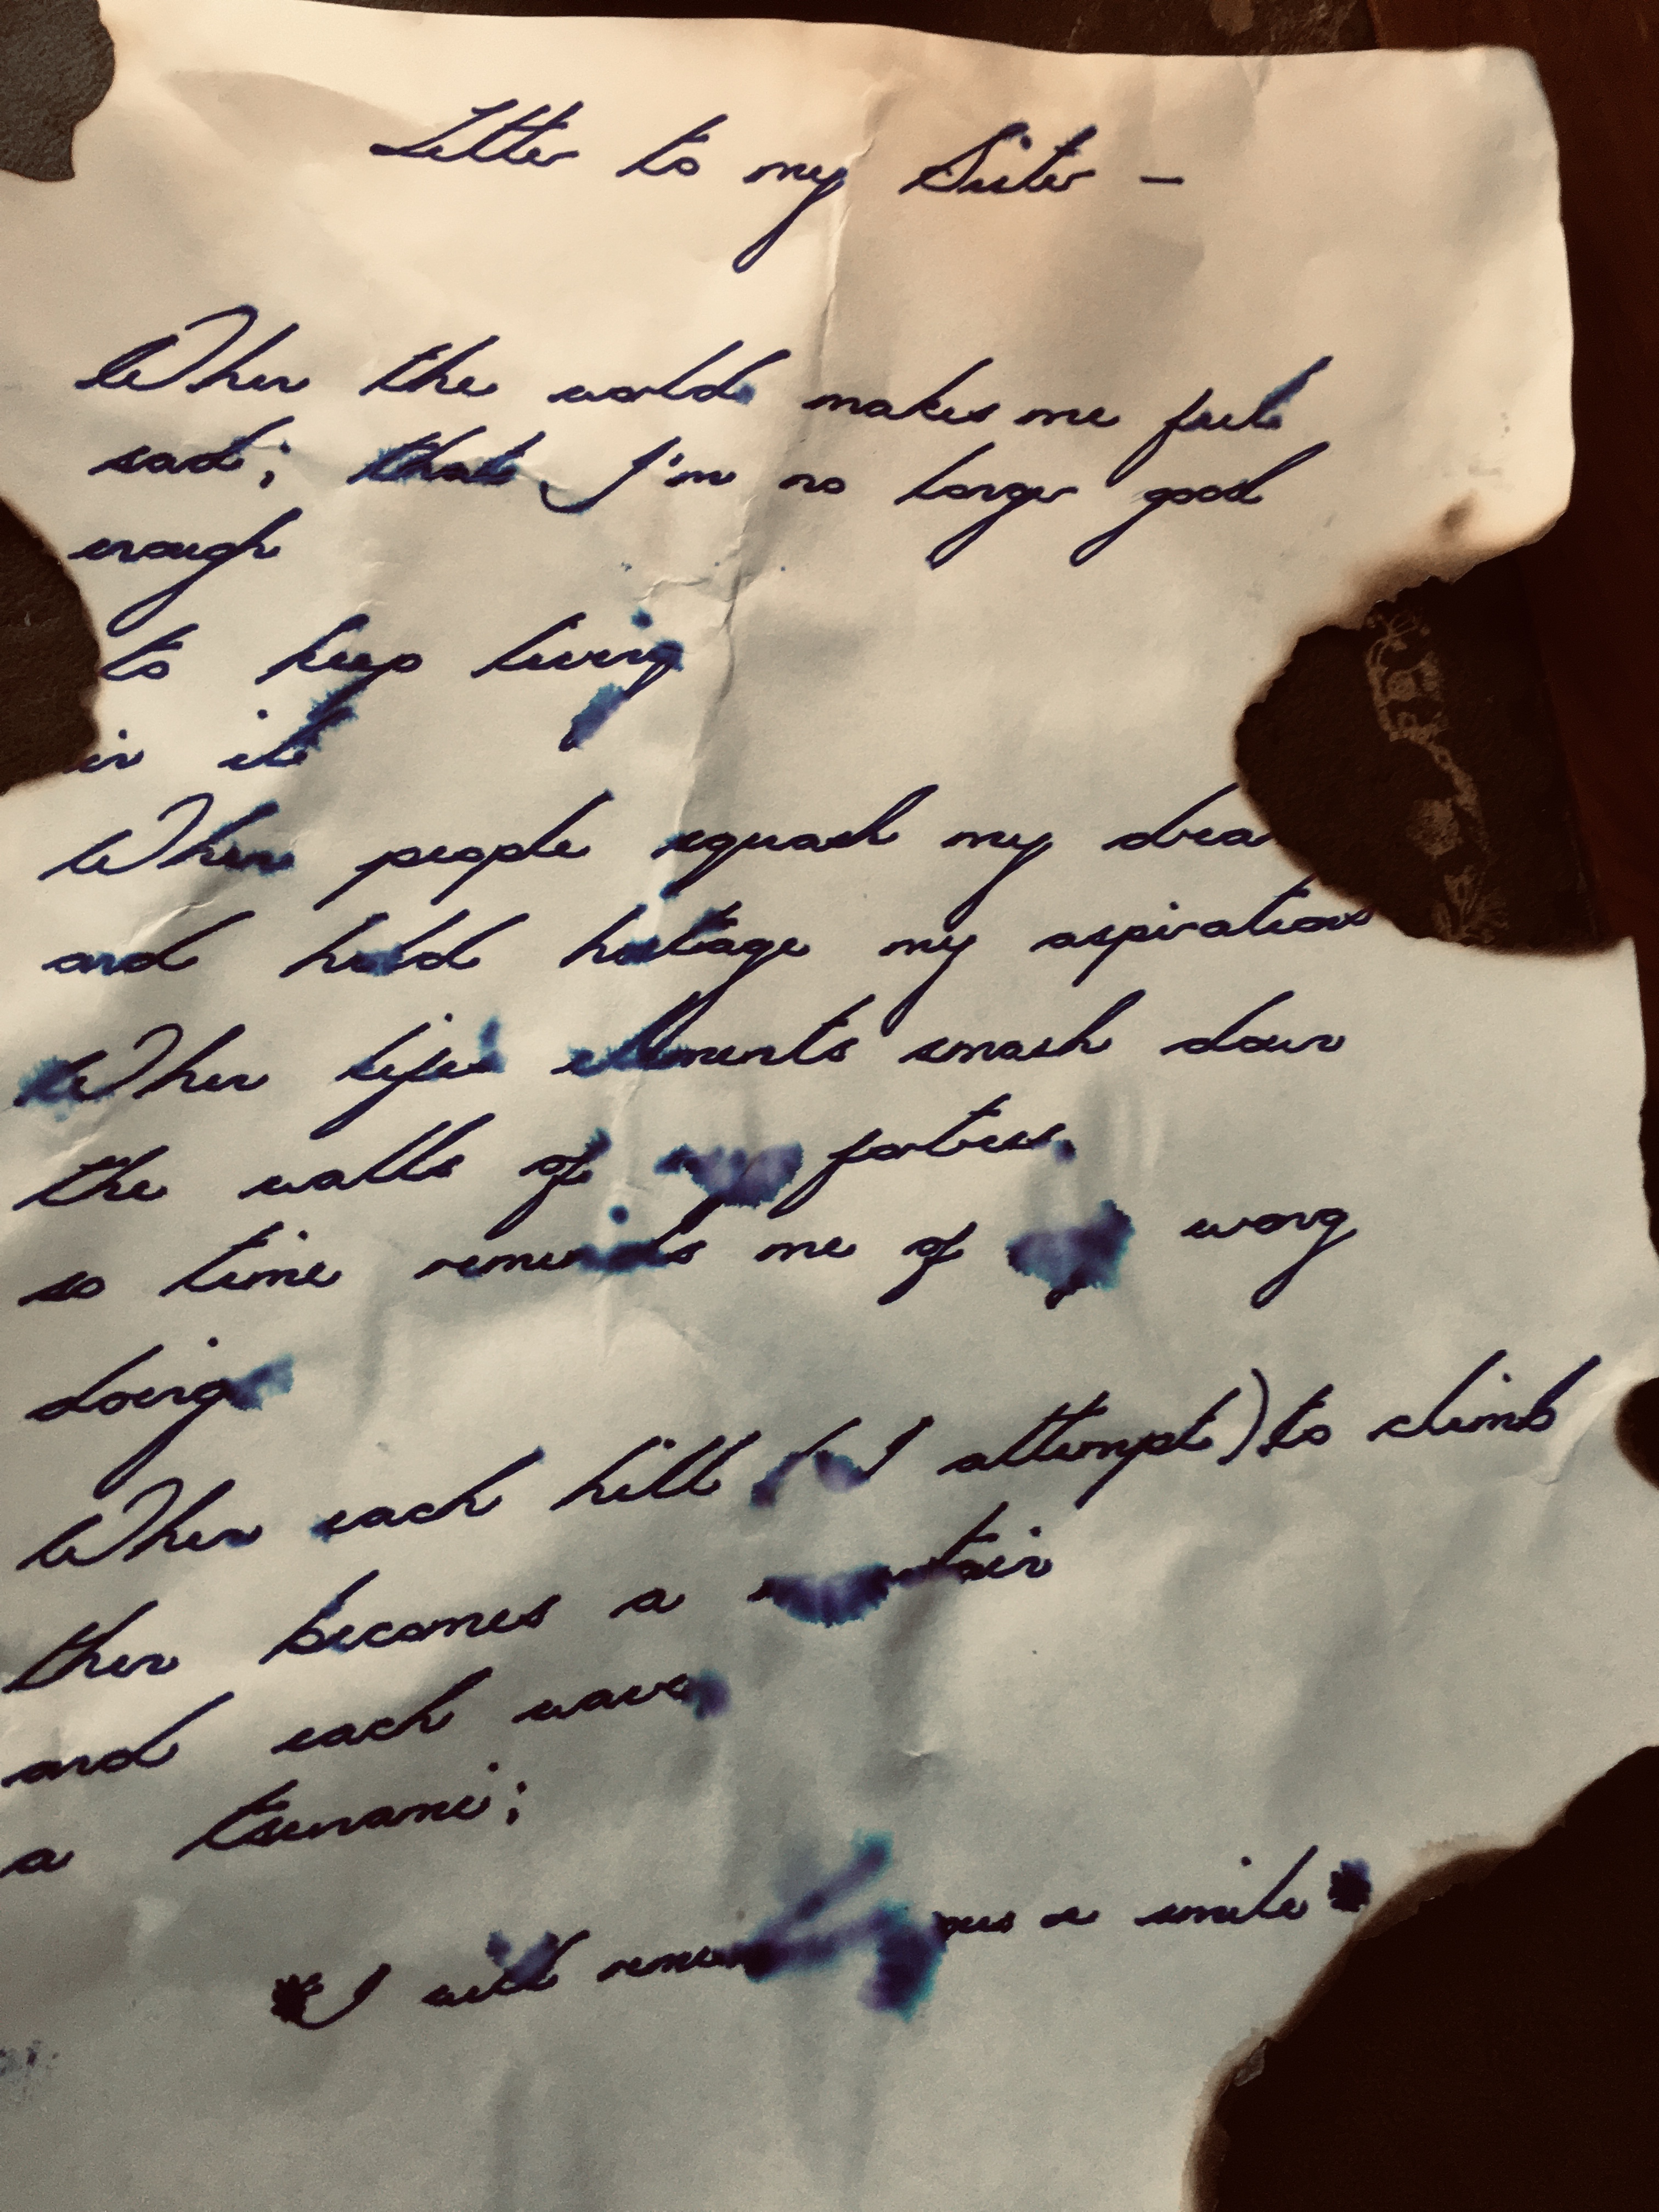 Letter to my Sister –
When the world makes me feel
sad; that I'm no longer good
enough
to keep living
in it
When people squash my drea
and hold hostage my aspirations
When lifes elements smash down
the walls of my fortress,
so time reminds me of wrong
doing
When each hill (I attempt) to climb
then becomes a mountain
and each wave
a tsunami;
I will a smile